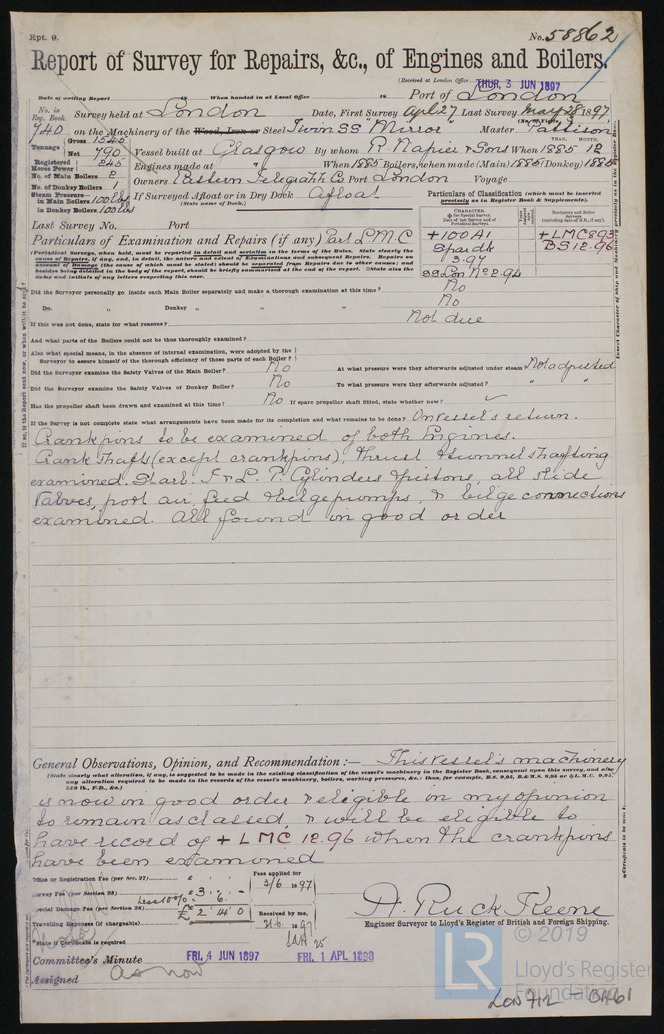 Rpt. 9.
No. 58862
Report of Survey for Repairs, &c., of Engines and Boilers.
(Received at London Office THUR. 3 JUN 1897
Date of writing Report 18 When handed in at Local Office 18 Port of London
No. in Reg. Book. Survey held at London Date, First Survey Apl 27 Last Survey May 28 1897
740 on the Machinery of the Wood, Iron or Steel Twin SS "Mirror" Master Pattison
Tonnage Gross 1545 Net 790 Vessel built at Glasgow By whom R. Napier & Sons When 1885 12
Registered Horse Power 245 Engines made at " When 1885 Boilers, when made (Main) 1885 (Donkey) 1885
No. of Main Boilers 2 Owners Eastern Telegraph Co Port London Voyage
No. of Donkey Boilers 1
Steam Pressure in Main Boilers 100 lbs If Surveyed Afloat or in Dry Dock Afloat
in Donkey Boilers 100 lbs (State name of Dock.)
Particulars of Classification (which must be inserted precisely as in Register Book & Supplements).
Last Survey No. Port
Particulars of Examination and Repairs (if any) Part L.M.C
+100A1
Spardk
3.97
SS Lon No 2.94
+LMC 8.93
BS 12.96
Did the Surveyor personally go inside each Main Boiler separately and make a thorough examination at this time? No
Do. " Donkey " " " No
If this was not done, state for what reasons? Not due
And what parts of the Boilers could not be thus thoroughly examined?
Also what special means, in the absence of internal examination, were adopted by the Surveyor to assure himself of the thorough efficiency of those parts of each Boiler?
Did the Surveyor examine the Safety Valves of the Main Boiler? No At what pressure were they afterwards adjusted under steam Not adjusted
Did the Surveyor examine the Safety Valves of Donkey Boiler? No To what pressure were they afterwards adjusted? " "
Has the propeller shaft been drawn and examined at this time? No If spare propeller shaft fitted, state whether new?
If the Survey is not complete state what arrangements have been made for its completion and what remains to be done? On vessel's return.
Crankpins to be examined of both Engines.
Crank shafts (except crankpins), thrust & tunnel shafting
examined. Starb. I & L. P. Cylinders & pistons, all slide
valves, port air, feed & bilge pumps, & bilge connections
examined. All found in good order
General Observations, Opinion, and Recommendation :— This vessel's machinery
(State clearly what alteration, if any, is suggested to be made in the existing classification of the vessel's machinery in the Register Book, consequent upon this survey, and also any alteration required to be made in the records of the vessel's machinery, boilers, working pressure, &c.
is now in good order & eligible in my opinion
to remain as classed, & will be eligible to
have record of + LMC 12.96 when the crankpins
have been examined
Office or Registration Fee (per Sec. 27) £
Survey Fee (per Section 28) £ 3 . " . -
less 10% 6 . -
Special Damage Fee (per Section 28) £ 2 14 0
Travelling Expenses (if chargeable)
Fees applied for
3/6 1897
Received by me,
A. Ruck Keene
Engineer Surveyor to Lloyd's Register of British and Foreign Shipping.
State if Certificate is required
Committee's Minute FRI. 4 JUN 1897 FRI. 1 APL 1898
Assigned as now
LR
© 2019
Lloyd's Register
Foundation
LON 712 - 0461